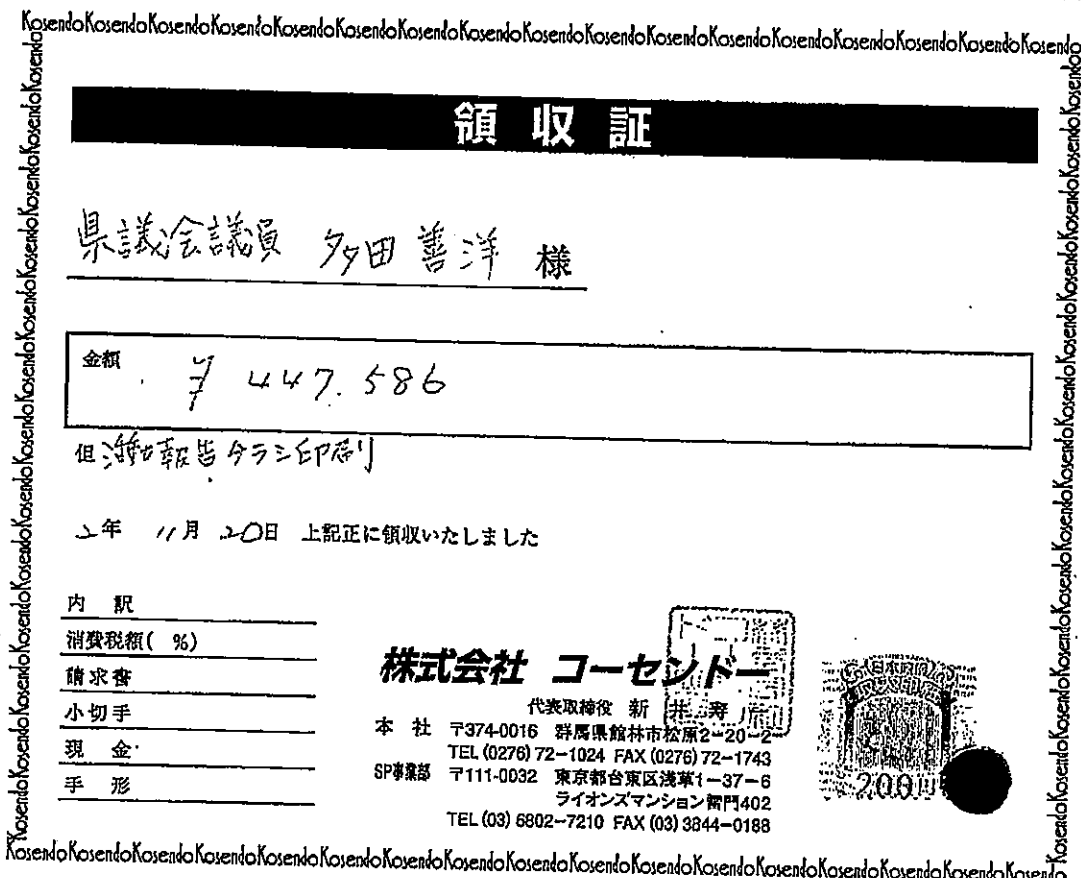 KosendoKosendoKosendoKosendoKosendoKosendoKosendoKosendoKosendoKosendoKosendoKosendoKosendoKosendo
領収証
県議会議員 多田善洋 様
金額 ¥447.586
但 活動報告チラシ印刷
2年 11月 20日 上記正に領収いたしました
内 訳
消費税額( %)
請求書
小切手
現 金
手 形
株式会社 コーセンドー
代表取締役 新井 寿
本 社 〒374-0016 群馬県館林市松原2-20-2
TEL (0276) 72-1024 FAX (0276) 72-1743
SP事業部 〒111-0032 東京都台東区浅草1-37-6
ライオンズマンション雷門402
TEL (03) 6802-7210 FAX (03) 3844-0188
200
KosendoKosendoKosendoKosendoKosendoKosendoKosendoKosendoKosendoKosendoKosendoKosendoKosendoKosendo